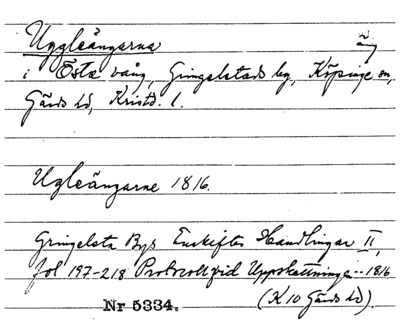 Uggleängarna äng
i Östa vång, Gringelstads by, Köpinge sn,
Gärds hd, Kristd. l.
Ugleängarne 1816.
Gringelsta Bys Enskiftes Handlingar II,
fol 197-218 Protocoll vid Uppskattningen -- 1816
Nr 5334. (K 10 Gärds hd).